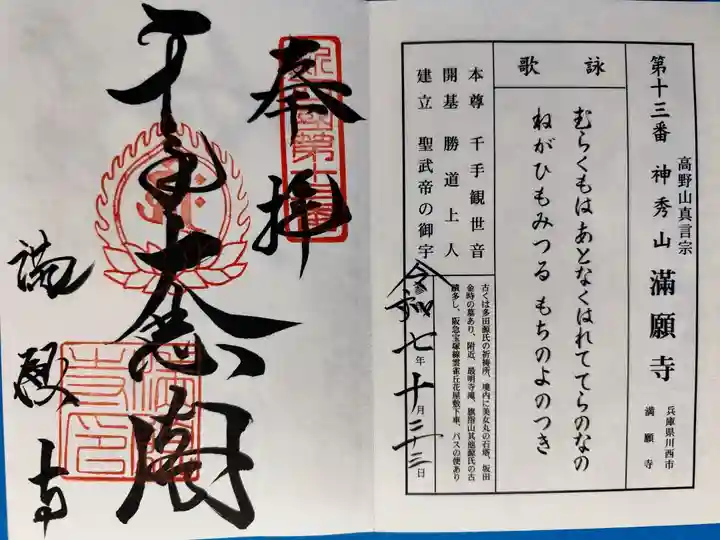 第十三番 神秀山 満願寺
高野山真言宗
兵庫県川西市
満願寺
詠歌
むらくもは あとなくはれて てらのなの
ねがひもみつる もちのよのつき
本尊 千手観世音
開基 勝道上人
建立 聖武帝の御宇
古くは多田源氏の祈祷所、境内に美女丸の石塔、坂田
金時の墓あり、附近、最明寺滝、旗指山其他源氏の古
蹟多し、阪急宝塚線雲雀丘花屋敷下車、バスの便あり
令和七年十月二十三日
奉拝
千手大悲閣
満願寺